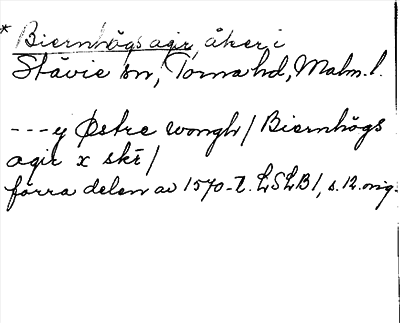 * Biernhögs agir, åker i
Stävie sn, Torna hd, Malm. l.
---y Østre wongh / Biernhögs
agir x skr /
förra delen av 1570-t. LSLB1, s. 12. orig.